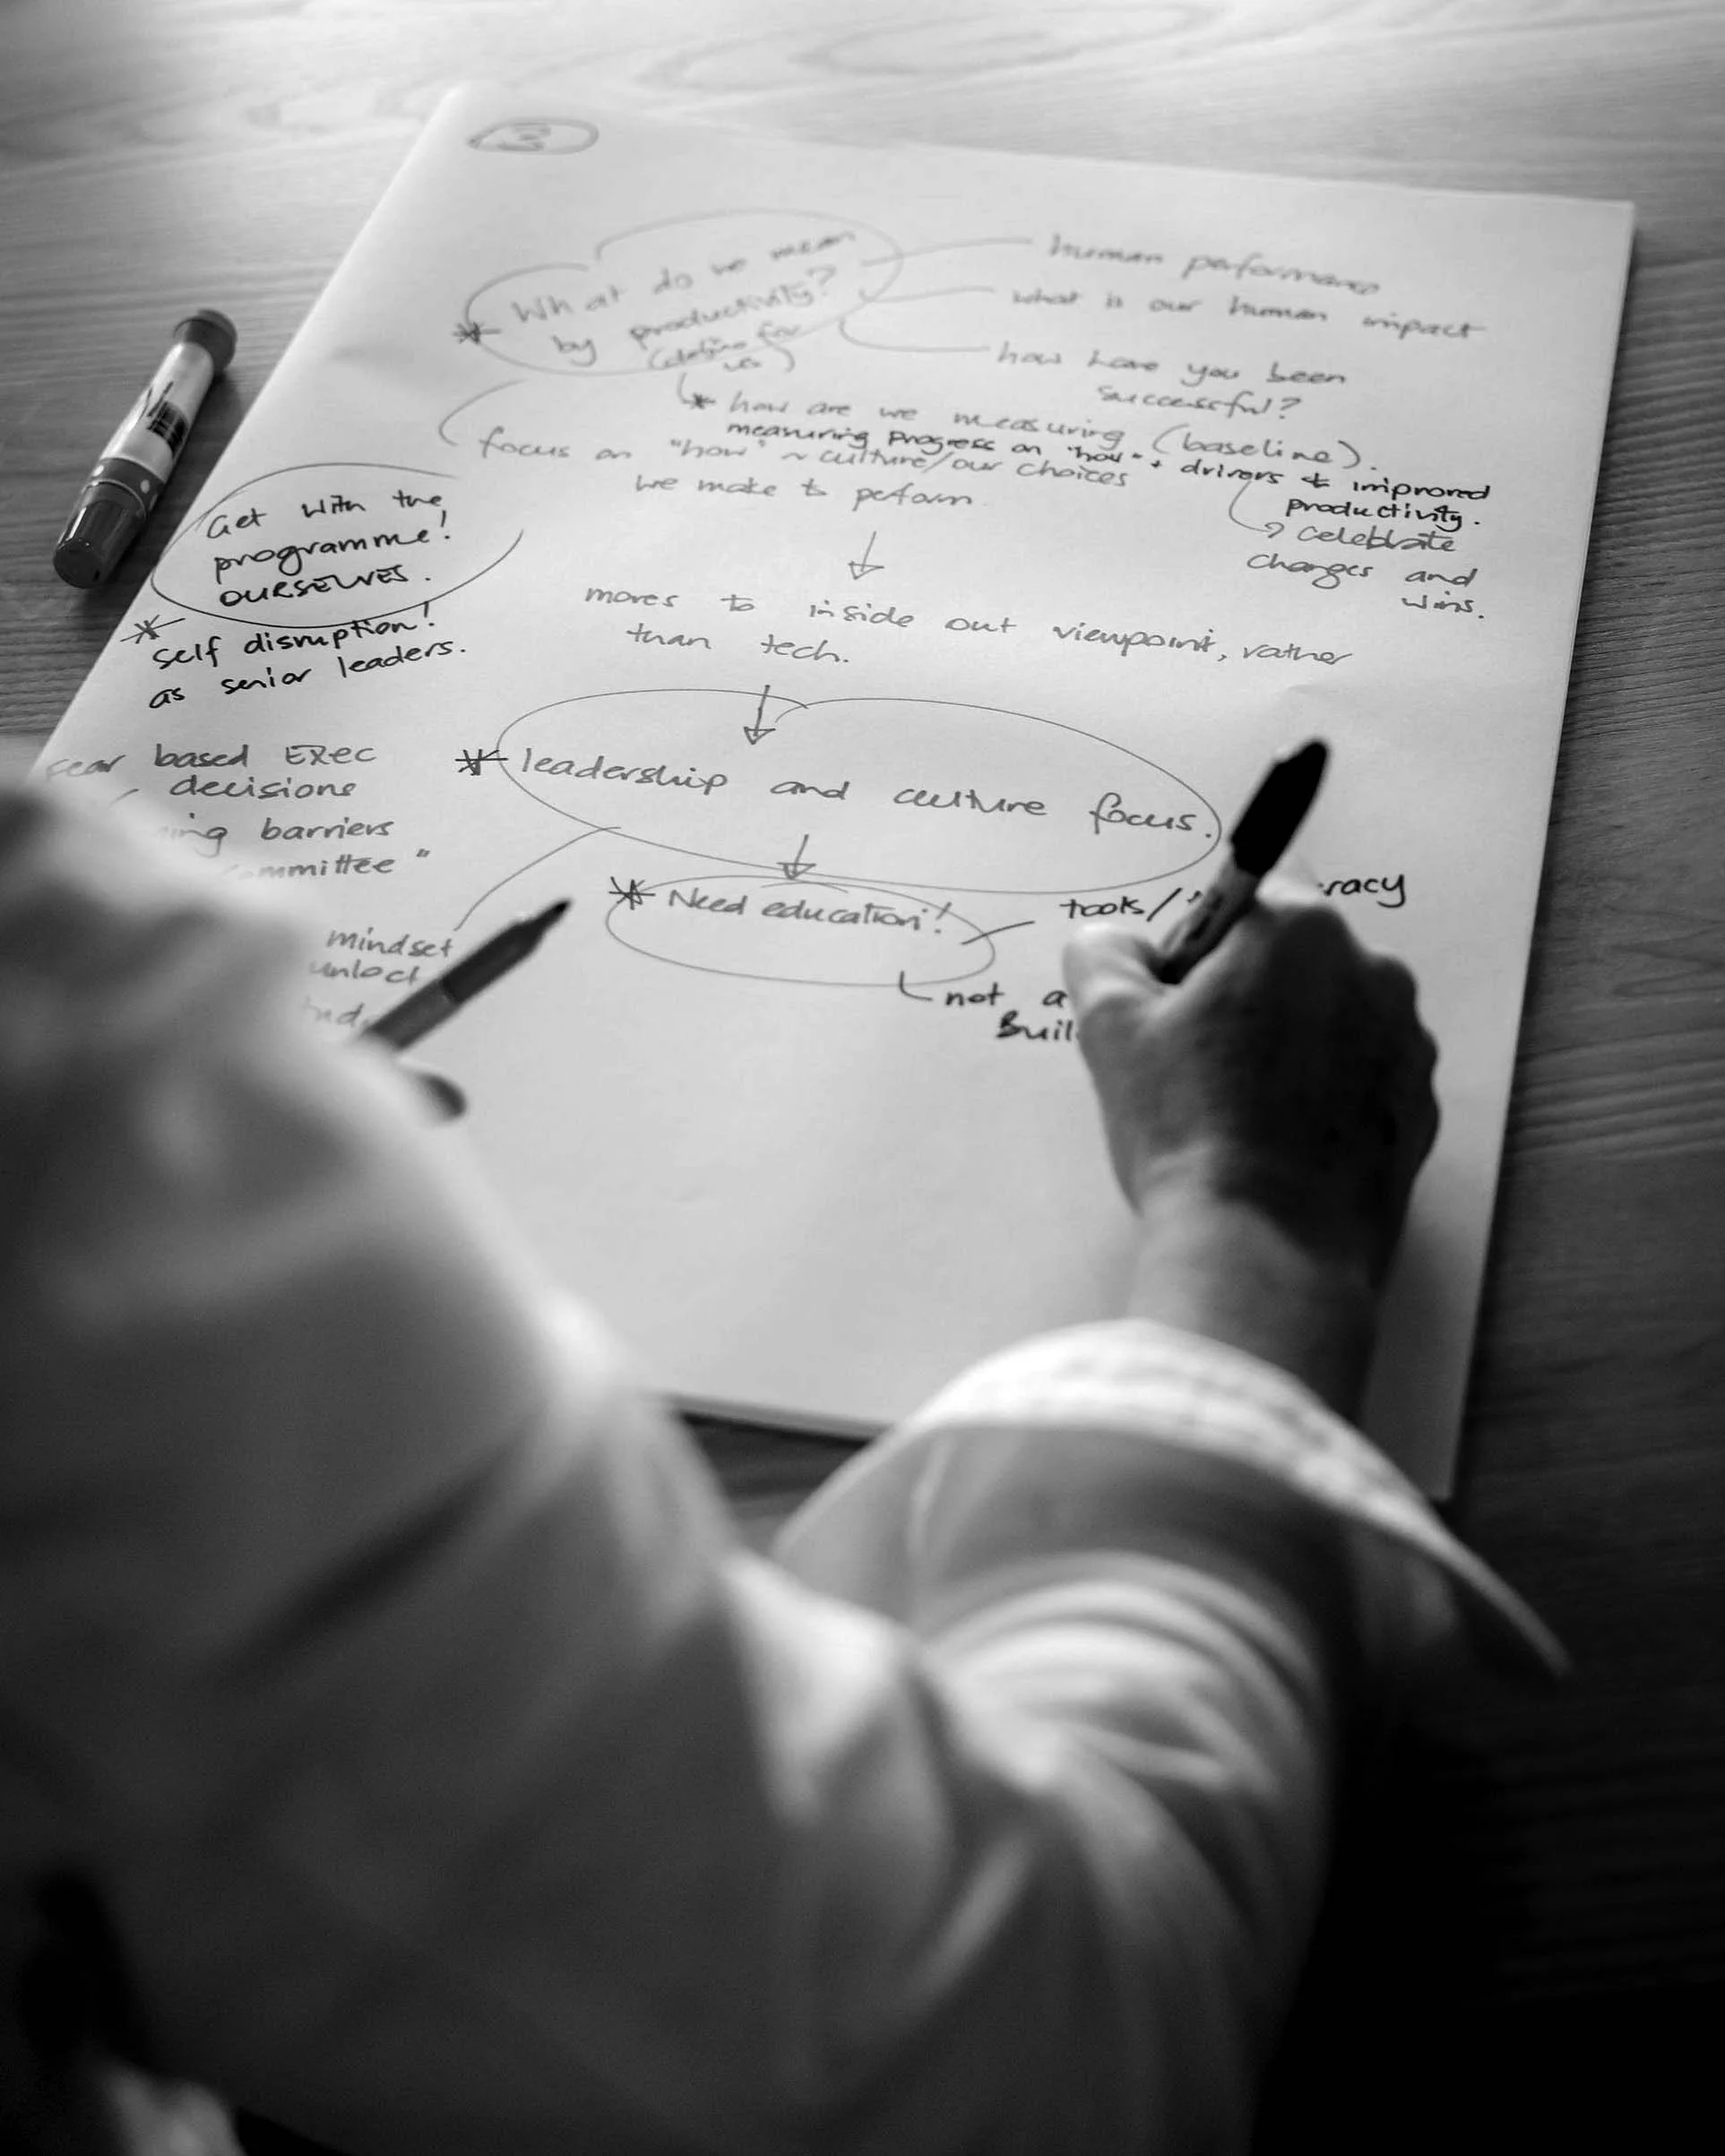 3
* What do we mean
by productivity?
(define for
us)
human performance
what is our human impact
how have you been
successful?
* how are we measuring (baseline).
measuring progress on "how" + drivers to improved
productivity.
celebrate
changes and
wins.
focus on "how" ~ culture/our choices
we make to perform
Get with the
programme!
OURSELVES.
* self disruption!
as senior leaders.
moves to inside out viewpoint, rather
than tech.
fear based Exec
decisions
barriers
* leadership and culture focus.
* Need education!
tools/
not a
mindset